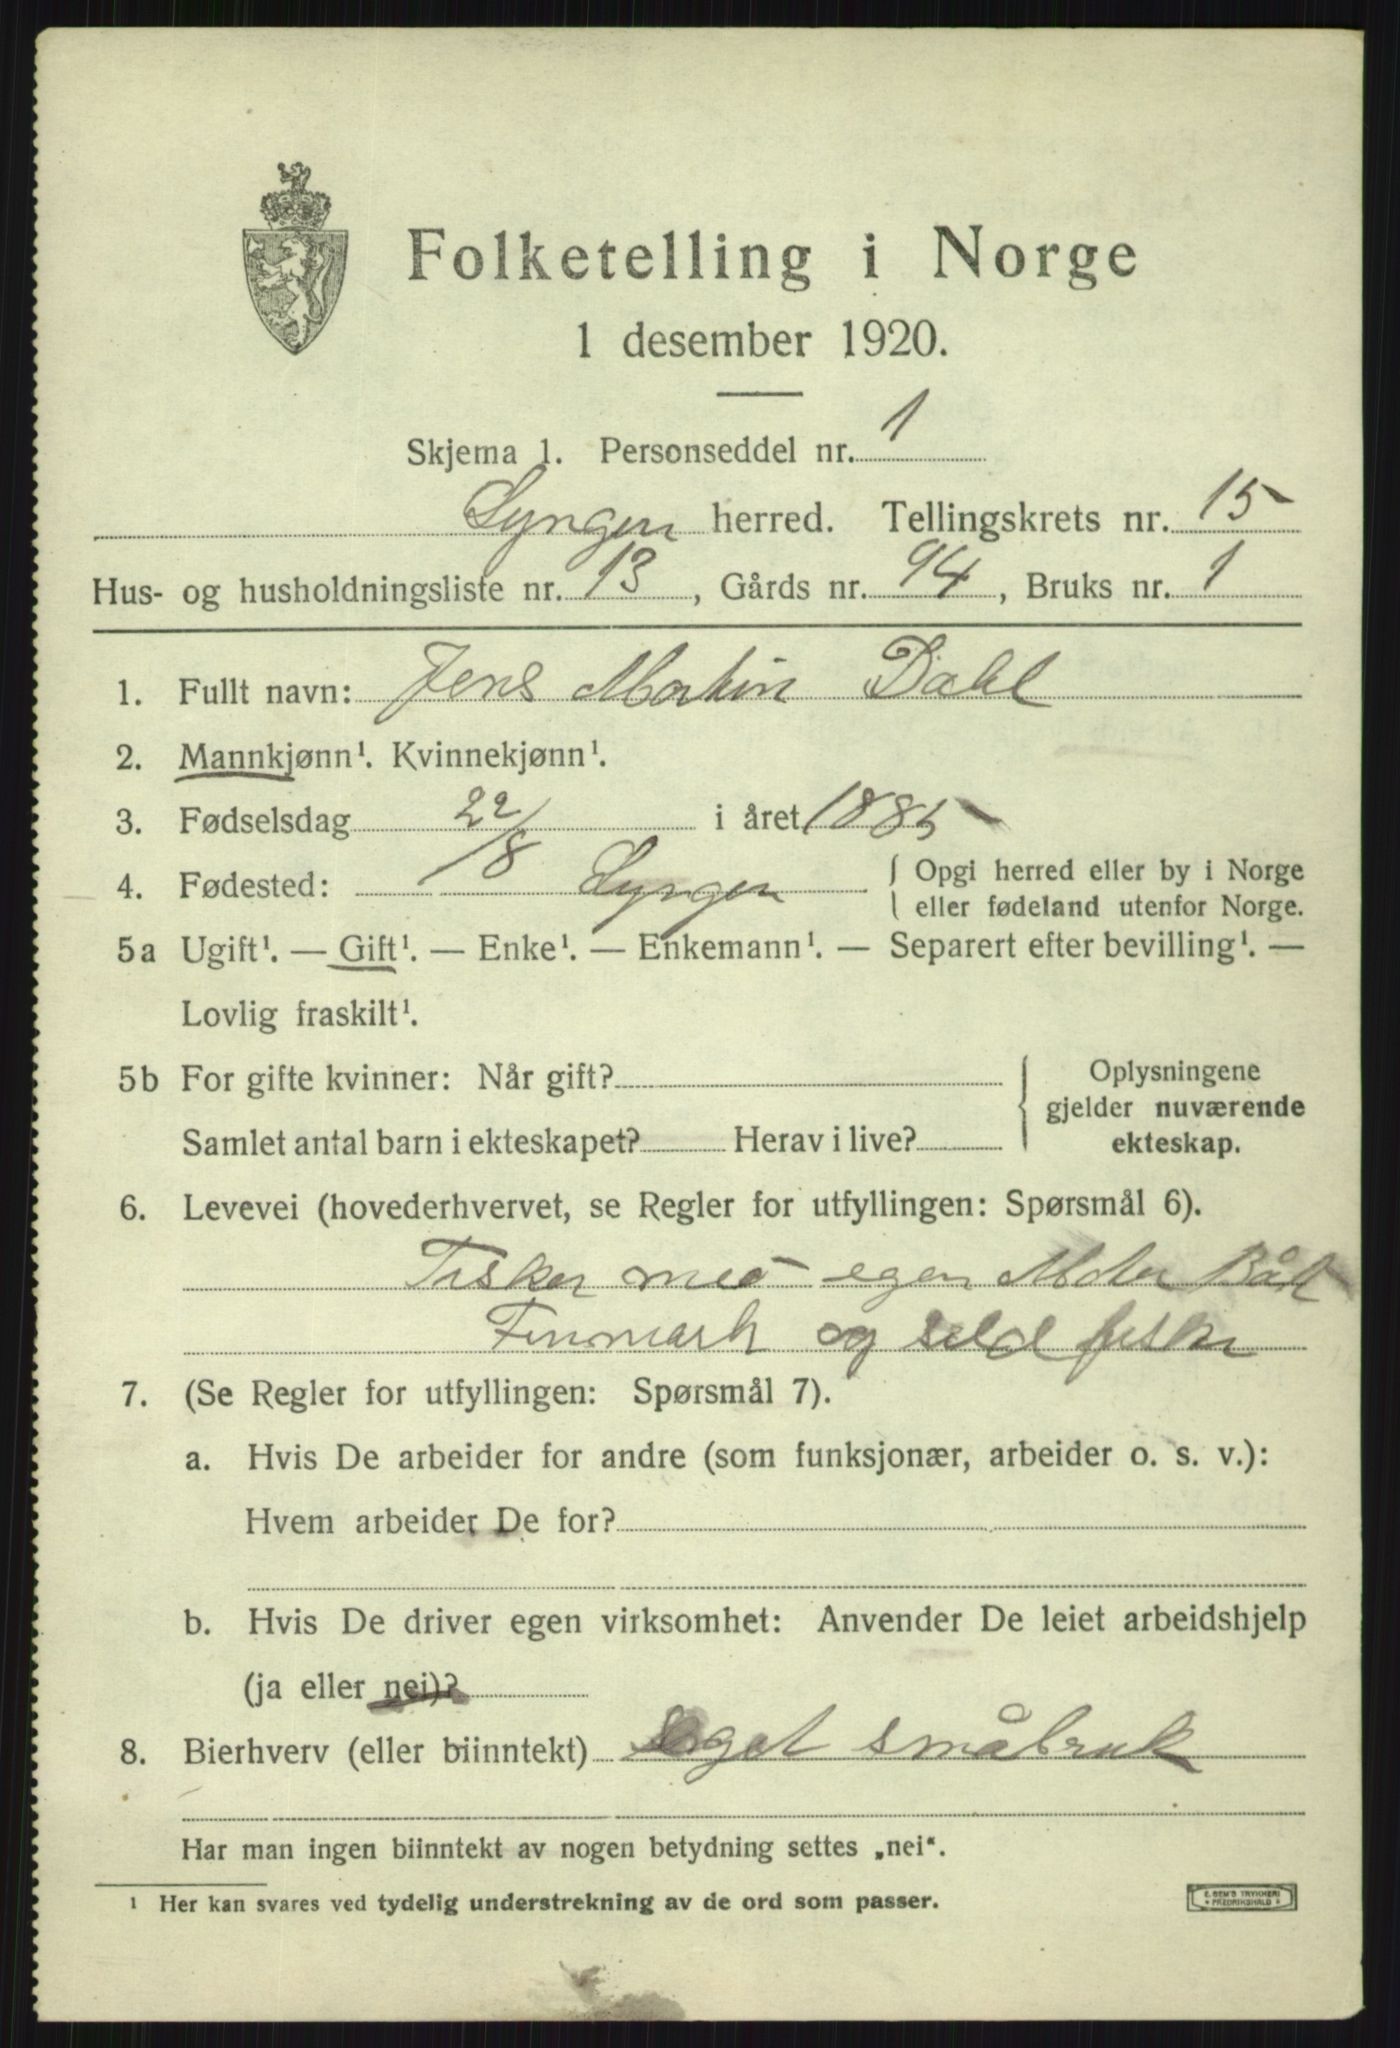 Folketelling i Norge
1 desember 1920.
Skjema 1. Personseddel nr. 1
Lyngen herred. Tellingskrets nr. 15
Hus- og husholdningsliste nr. 13, Gårds nr. 94, Bruks nr. 1
1. Fullt navn: Jens Martin Dahl
2. Mannkjønn¹. Kvinnekjønn¹.
3. Fødselsdag 22/8 i året 1885
4. Fødested: Lyngen { Opgi herred eller by i Norge
eller fødeland utenfor Norge.
5a Ugift¹. — Gift¹. — Enke¹. — Enkemann¹. — Separert efter bevilling¹. —
Lovlig fraskilt¹.
5b For gifte kvinner: Når gift? { Oplysningene
gjelder nuværende
Samlet antal barn i ekteskapet? Herav i live? ekteskap.
6. Levevei (hovederhvervet, se Regler for utfyllingen: Spørsmål 6).
Fisker med egen Motor Båt
Finmark og seld fisker
7. (Se Regler for utfyllingen: Spørsmål 7).
a. Hvis De arbeider for andre (som funksjonær, arbeider o. s. v.):
Hvem arbeider De for?
b. Hvis De driver egen virksomhet: Anvender De leiet arbeidshjelp
(ja eller nei)?
8. Bierhverv (eller biinntekt) Eget småbruk
Har man ingen biinntekt av nogen betydning settes „nei“.
¹ Her kan svares ved tydelig understrekning av de ord som passer.
E. SEM'S TRYKKERI
FREDRIKSHALD